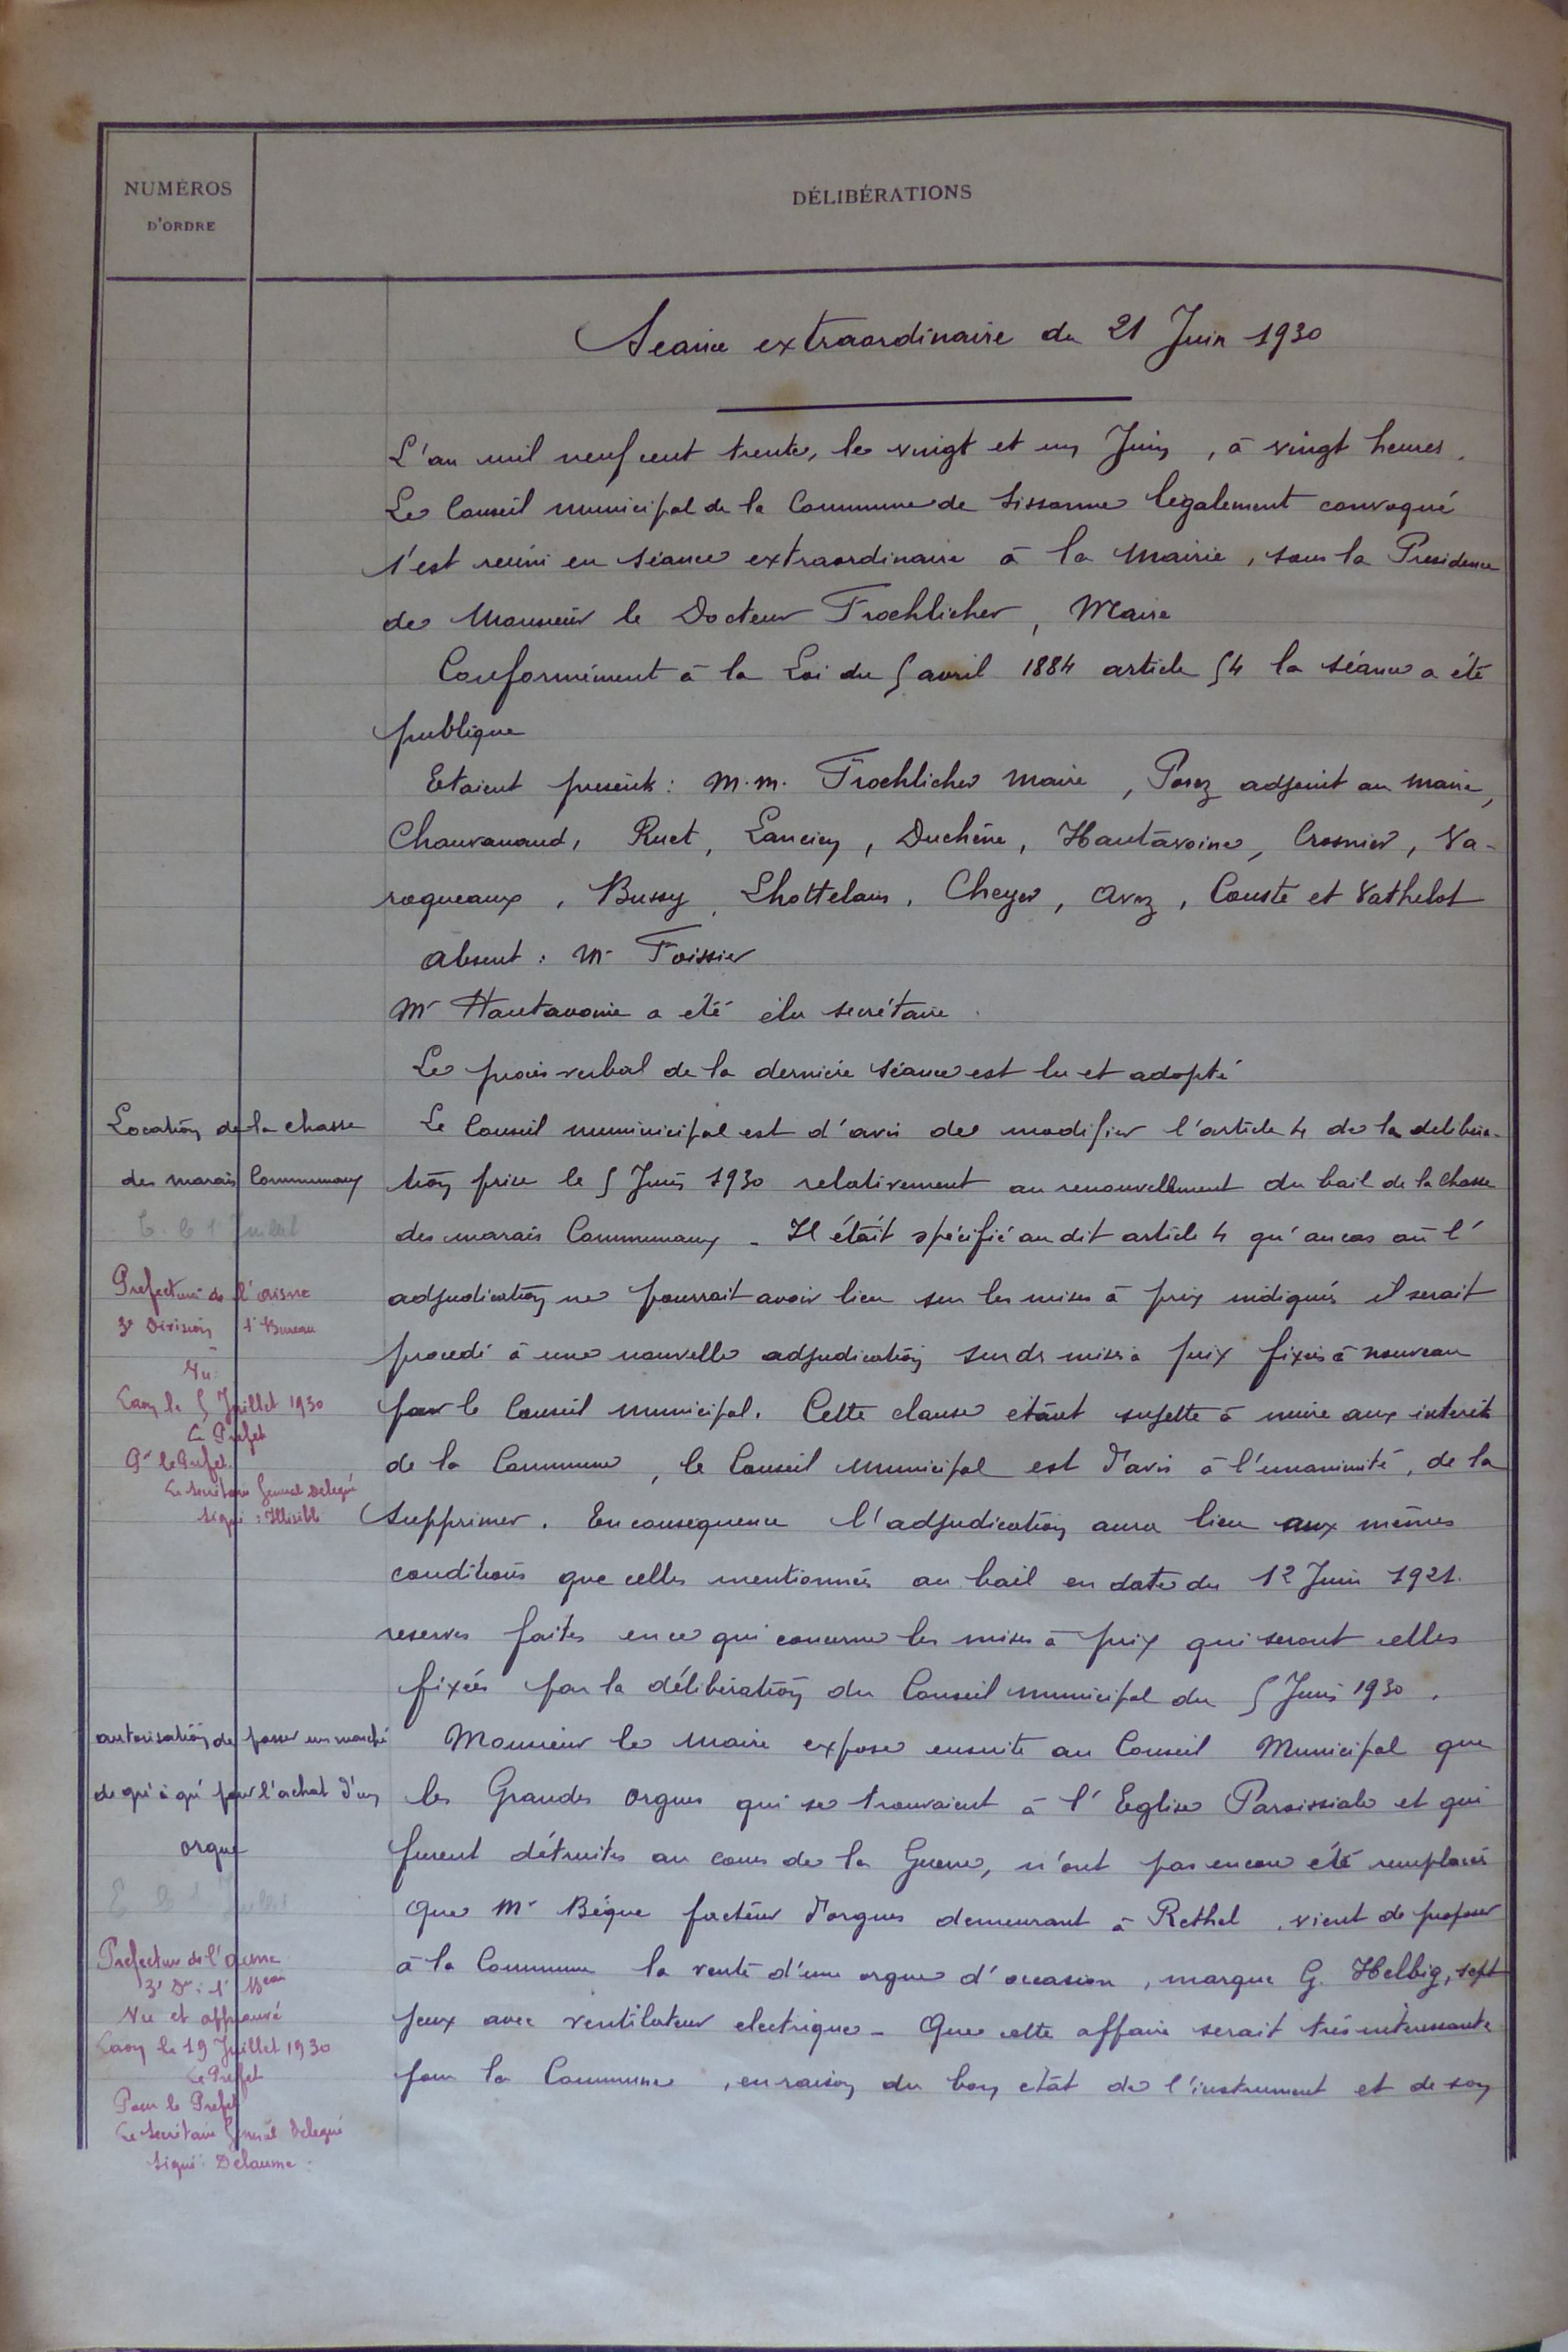 NUMÉROS
D'ORDRE
DÉLIBÉRATIONS
Séance extraordinaire du 21 Juin 1930
L'an mil neuf cent trente, le vingt et un Juin, à vingt heures.
Le Conseil municipal de la Commune de Sissonne légalement convoqué
s'est réuni en séance extraordinaire à la Mairie, sous la Presidence
de Monsieur le Docteur Froehlicher, Maire
Conformément à la Loi du 5 avril 1884 article 54 la séance a été
publique
Etaient présents : M.M. Froehlicher maire, Posez adjoint au maire,
Chauvanaud, Ruet, Lancien, Duchêne, Hautavoine, Crosnier, Va-
roqueaux, Bussy, Lhottelain, Cheyer, Avez, Cousté et Vathelot
absent : Mr Foissier
Mr Hautavoine a été élu secrétaire.
Le procès verbal de la dernière séance est lu et adopté
Location de la chasse
des marais Communaux
E. le 1 Juillet
Prefecture de l'aisne
3e Division 1er Bureau
Vu :
Laon le 5 Juillet 1930
Le Préfet
Pr le Préfet.
Le Secrétaire Général Délégué
signé : Illisible
Le Conseil muninicipal est d'avis de modifier l'article 4 de la délibéra-
tion prise le 5 Juin 1930 relativement au renouvellement du bail de la Chasse
des marais Communaux - Il était spécifié au dit article 4 qu'au cas où l'
adjudication ne pourrait avoir lieu sur les mises à prix indiqués il serait
procédé à une nouvelle adjudication sur ds mises à prix fixés à nouveau
par le Conseil municipal. Cette clause étant sujette à nuire aux intérêts
de la Commune, le Conseil Municipal est d'avis à l'unanimité, de la
supprimer. En conséquence l'adjudication aura lieu aux mêmes
conditions que celles mentionnées au bail en date du 12 Juin 1921.
reserves faites en ce qui concerne les mises à prix qui seront celles
fixées par la délibération du Conseil municipal du 5 Juin 1930.
autorisation de passer un marché
de gré à gré pour l'achat d'un
orgue
E le 1 Juillet
Prefecture de l'Aisne
3e Don : 1er Beau
Vu et approuvé
Laon le 19 Juillet 1930
Le Préfet
Pour le Préfet
Le Secrétaire Général Délégué
signé : Delaume.
Monsieur le maire expose ensuite au Conseil Municipal que
les Grandes orgues qui se trouvaient à l'Eglise Paroissiale et qui
furent détruites au cours de la Guerre, n'ont pas encore été remplacés
Que Mr Bègue facteur d'orgues demeurant à Rethel, vient de proposer
à la Commune la vente d'une orgue d'occasion, marque G. Helbig, sept
jeux avec ventilateur electrique - Que cette affaire serait très intéressante
pour la Commune, en raison du bon état de l'instrument et de son